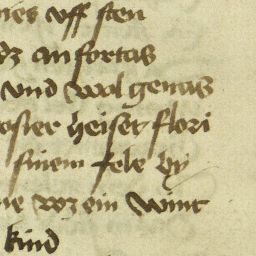 nes uff sten
dz anfortas
vnd wol genas
ester heiset flori
sinem sele by
ne wz ein wint
kind